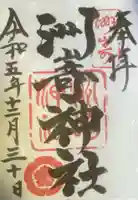 奉拝
洲崎神社
令和五年十二月三十日